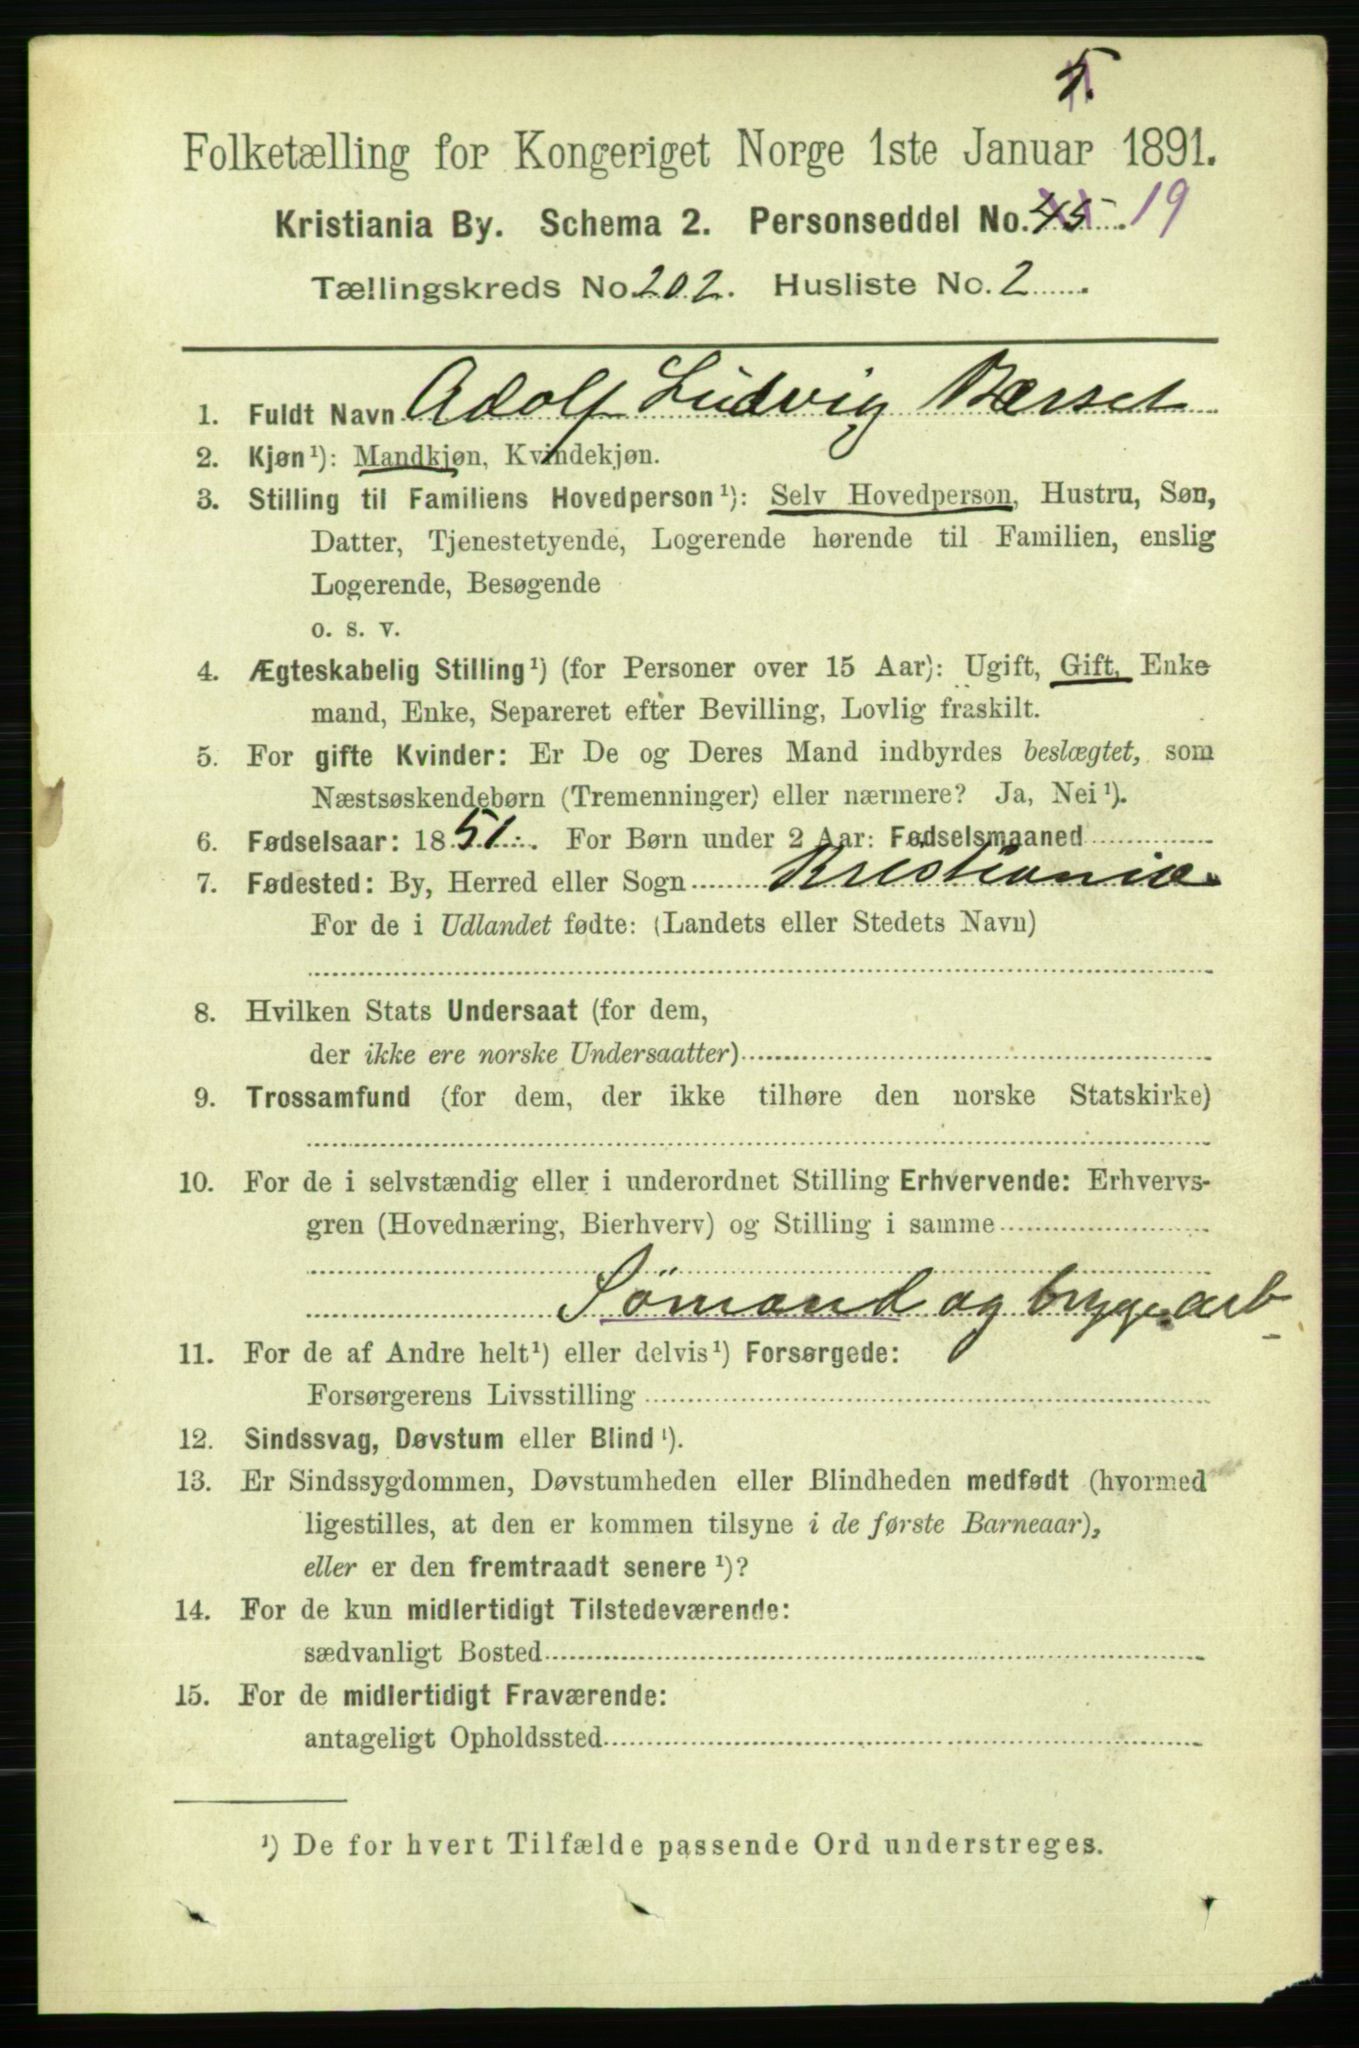 5.
Folketælling for Kongeriget Norge 1ste Januar 1891.
Kristiania By. Schema 2. Personseddel No. 45. 19
Tællingskreds No. 202. Husliste No. 2
1. Fuldt Navn Adolf Ludvig
2. Kjøn¹): Mandkjøn, Kvindekjøn.
3. Stilling til Familiens Hovedperson¹): Selv Hovedperson, Hustru, Søn,
Datter, Tjenestetyende, Logerende hørende til Familien, enslig
Logerende, Besøgende
o. s. v.
4. Ægteskabelig Stilling¹) (for Personer over 15 Aar): Ugift, Gift, Enke
mand, Enke, Separeret efter Bevilling, Lovlig fraskilt.
5. For gifte Kvinder: Er De og Deres Mand indbyrdes beslægtet, som
Næstsøskendebørn (Tremenninger) eller nærmere? Ja, Nei¹).
6. Fødselsaar: 1851. For Børn under 2 Aar: Fødselsmaaned
7. Fødested: By, Herred eller Sogn Kristiania
For de i Udlandet fødte: (Landets eller Stedets Navn)
8. Hvilken Stats Undersaat (for dem,
der ikke ere norske Undersaatter)
9. Trossamfund (for dem, der ikke tilhøre den norske Statskirke)
10. For de i selvstændig eller i underordnet Stilling Erhvervende: Erhvervs-
gren (Hovednæring, Bierhverv) og Stilling i samme
Sömand og bryggearb
11. For de af Andre helt¹) eller delvis¹) Forsørgede:
Forsørgerens Livsstilling
12. Sindssvag, Døvstum eller Blind¹).
13. Er Sindssygdommen, Døvstumheden eller Blindheden medfødt (hvormed
ligestilles, at den er kommen tilsyne i de første Barneaar),
eller er den fremtraadt senere¹)?
14. For de kun midlertidigt Tilstedeværende:
sædvanligt Bosted
15. For de midlertidigt Fraværende:
antageligt Opholdssted
¹) De for hvert Tilfælde passende Ord understreges.